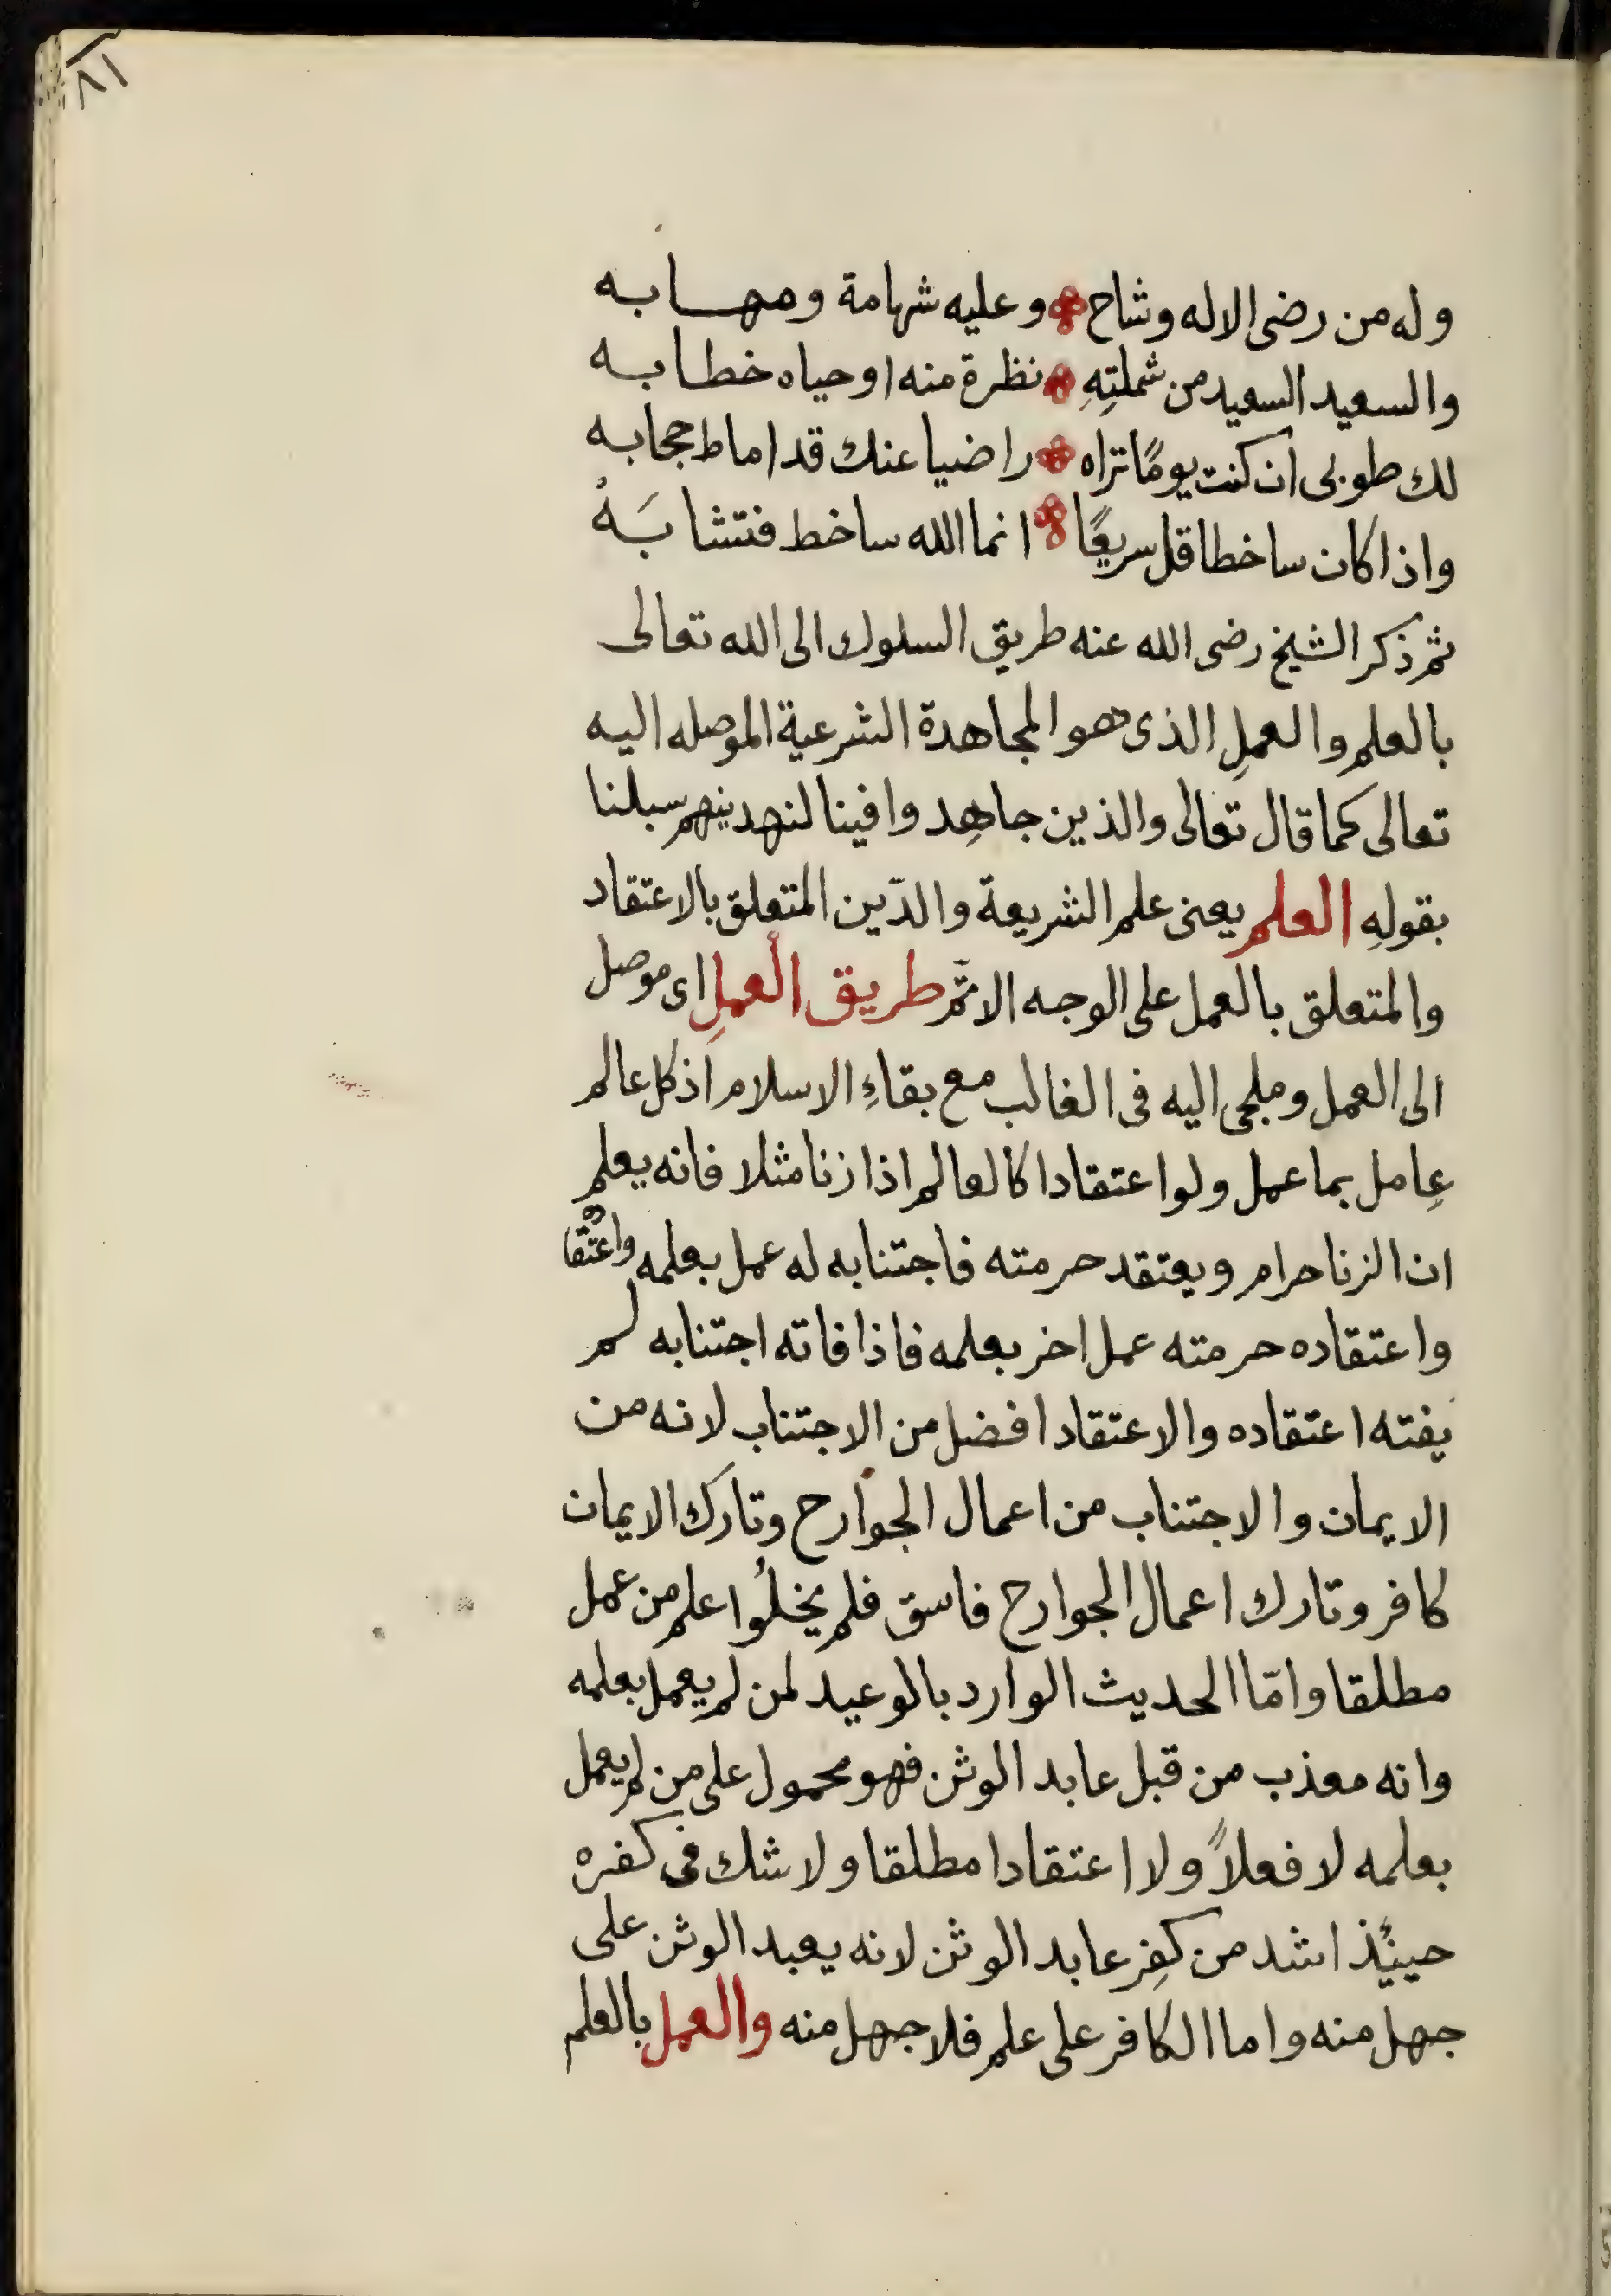 ٨١
وله من رضى الاله وشاح وعليه شهامة ومهابه
والسعيد السعيد من شملتِهِ نظرة منه اوحياه خطابه
لك طوبى ان كنت يومًا تراه راضيا عنك قد اماط حجابه
واذا كان ساخطا قل سريعًا انما الله ساخط فتشابَهْ
ثم ذكر الشيخ رضى الله عنه طريق السلوك الى الله تعالى
بالعلم والعملِ الذى هو المجاهدة الشرعية الموصله اليه
تعالى كما قال تعالى والذين جاهِدوا فينا لنهدينهم سبلنا
بقولهِ العلم يعنى علم الشريعة والدّين المتعلق بالاعتقاد
والمتعلق بالعمل على الوجه الاتمّ طريق العملِ اى موصل
الى العمل وملجى اليه فى الغالب مع بقاءِ الاسلام اذ كل عالم
عِامل بما عمل ولو اعتقادا كالعالم اذا زنا مثلا فانه يعلم
ان الزنا حرام ويعتقد حرمته فاجتنابه له عمل بعلمه واعتقاده
واعتقاده حرمته عمل اخر بعلمه فاذا فاته اجتنابه لم
يفته اعتقاده والاعتقاد افضل من الاجتناب لانه من
الايمان والاجتناب من اعمال الجوارح وتارك الايمان
كافر وتارك اعمال الجوارح فاسق فلم يخلُوا علم من عمل
مطلقا وامّا الحديث الوارد بالوعيد لمن لم يعمل بعلمه
وانه معذب من قبل عابد الوثن فهو محمول على من لم يعمل
بعلمه لا فعلاً ولا اعتقادا مطلقا ولا شك فى كفره
حينئذ اشد من كفِر عابد الوثن لانه يعبد الوثن على
جهل منه واما الكافر على علم فلا جهل منه والعمل بالعلم